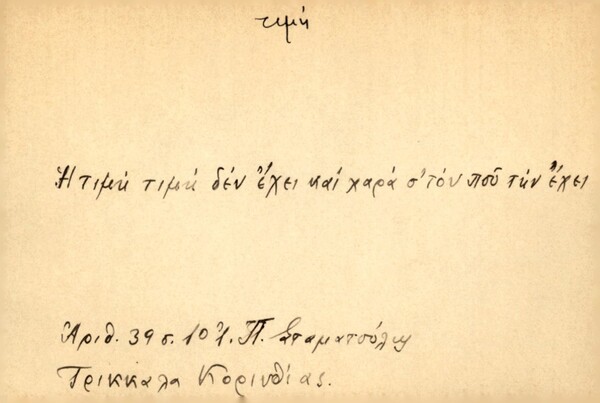 τιμή
Ἡ τιμή τιμή δέν ἔχει καί χαρά σ' τόν ποῦ τήν ἔχει
Ἀριθ. 39 σ. 101. Π. Σταματούλης
Τρίκκαλα Κορινθίας.